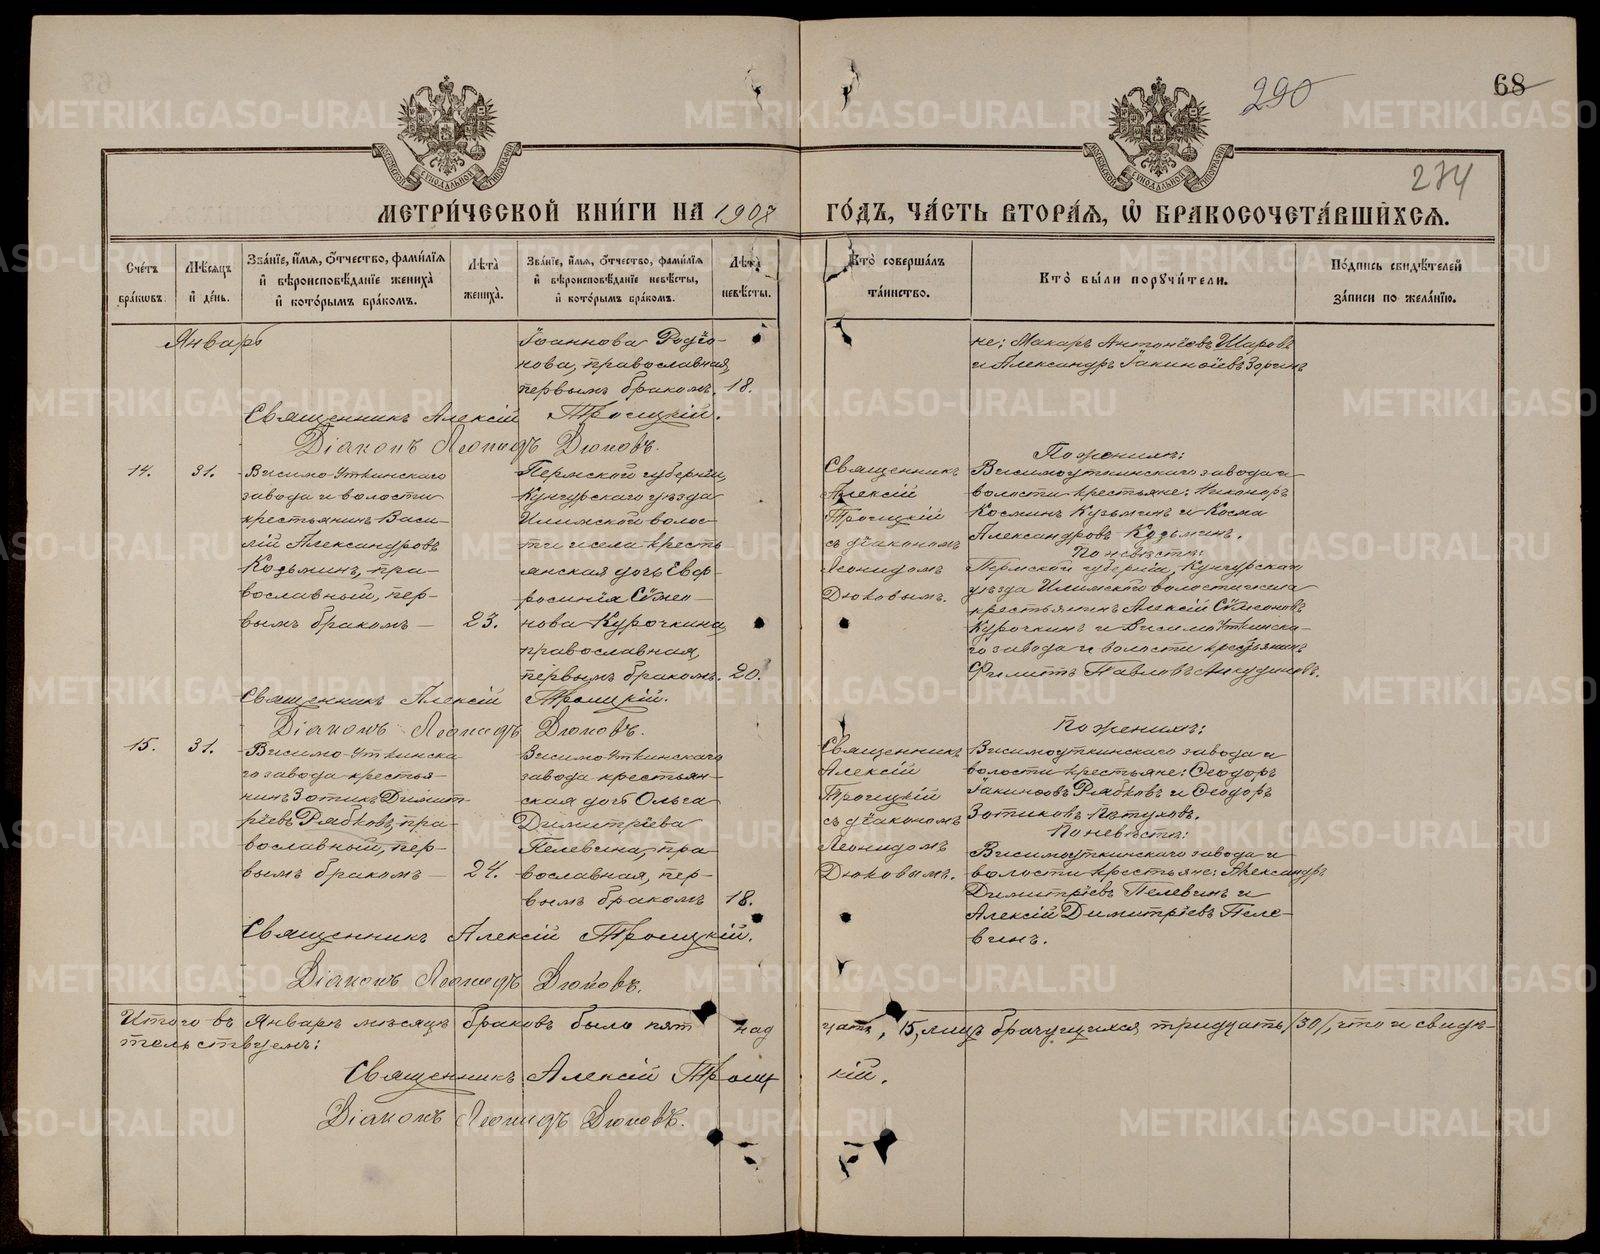 68
290
274
МЕТРИ́ЧЕСКОЙ КНИ́ГИ НА 1907
ГО́ДЪ, ЧА́СТЬ ВТОРА́Я, Ѡ БРАКОСОЧЕТА́ВШИХСЯ.
Сче́тъ бра́кωвъ.
Мѣ́сяцъ и҆ де́нь.
Зва́нїе, и҆́мя, ѻ҆́тчество, фами́лїя и҆ вѣроисповѣ́данїе жениха̀ и҆ кото́рымъ бра́комъ.
Лѣ́та жениха̀.
Зва́нїе, и҆́мя, ѻ҆́тчество, фами́лїя и҆ вѣроисповѣ́данїе невѣ́сты, и҆ кото́рымъ бра́комъ.
Лѣ́та невѣ́сты.
Кто̀ соверша́лъ та́инство.
Кто̀ бы́ли порꙋчи́тели.
По́дпись свидѣ́телей за́писи по жела́нїю.
Январь
Іоаннова Родіо-
нова, православная,
первымъ бракомъ. 18.
не: Макаръ Антоніевъ Шаровъ
и Александръ Іакинѳіевъ Зоринъ
Священникъ Алексій Троицкій.
Діаконъ Леонидъ Дюковъ.
14.
31.
Висимо-Уткинскаго
завода и волости
крестьянинъ Васи-
лій Александровъ
Козьминъ, пра-
вославный, пер-
вымъ бракомъ —
23.
Пермской губерніи,
Кунгурскаго уѣзда
Илимской волос-
ти и села кресть-
янская дочь Евф-
росинія Сѵмео-
нова Курочкина,
православная,
первымъ бракомъ.
20.
Священникъ
Алексій
Троицкій
съ діакономъ
Леонидомъ
Дюковымъ.
По женихѣ:
Висимоуткинскаго завода и
волости крестьяне: Никаноръ
Косминъ Кузьминъ и Косма
Александровъ Козьминъ.
По невѣстѣ:
Пермской губерніи, Кунгурскаго
уѣзда Илимской волости и села
крестьянинъ Алексій Сѵмеоновъ
Курочкинъ и Висимо-Уткинска-
го завода и волости крестьянинъ
Филиппъ Павловъ Анкудиновъ.
Священникъ Алексій Троицкій.
Діаконъ Леонидъ Дюковъ.
15.
31.
Висимо-Уткинска
го завода крестья-
нинъ Зотикъ Димит-
ріевъ Рябковъ, пра-
вославный, пер-
вымъ бракомъ —
24.
Висимо-Уткинскаго
завода крестьян-
ская дочь Ольга
Димитріева
Пелевина, пра-
вославная, пер-
вымъ бракомъ
18.
Священникъ
Алексій
Троицкій
съ діакономъ
Леонидомъ
Дюковымъ.
По женихѣ:
Висимоуткинскаго завода и
волости крестьяне: Ѳеодоръ
Іакинѳовъ Рябковъ и Ѳеодоръ
Зотиковъ Пѣтуховъ.
По невѣстѣ:
Висимоуткинскаго завода и
волости крестьяне: Александръ
Димитріевъ Пелевинъ и
Алексій Димитріевъ Пеле-
винъ.
Священникъ Алексій Троицкій.
Діаконъ Леонидъ Дюковъ.
Итого въ Январѣ мѣсяцѣ браковъ было пятнад цать, 15, лицъ брачущихся тридцать /30/, что и свидѣ-
тельствуемъ:
Священникъ Алексій Троицкій.
Діаконъ Леонидъ Дюковъ.
METRIKI.GASO-URAL.RU